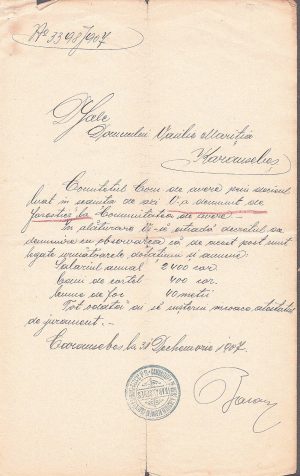 No 3398/907
D Sale
Domnului Vasilie Mariția
Karánsebeș
Comitetul Com. de avere prin decisul
luat în ședința de azi V-a denumit de
forestier la Comunitatea de avere.
În alăturare Vi-să estradă decretul de
denumire cu observarea că de acest post sunt
legate următoarele dotațiuni și anume:
Salariul anual 2400 cor.
bani de cortel 400 cor.
lemne de foc 40 metri
Tot odată vi se
de jurament.
Caransebeș la 31 Dechemvrie 1907.